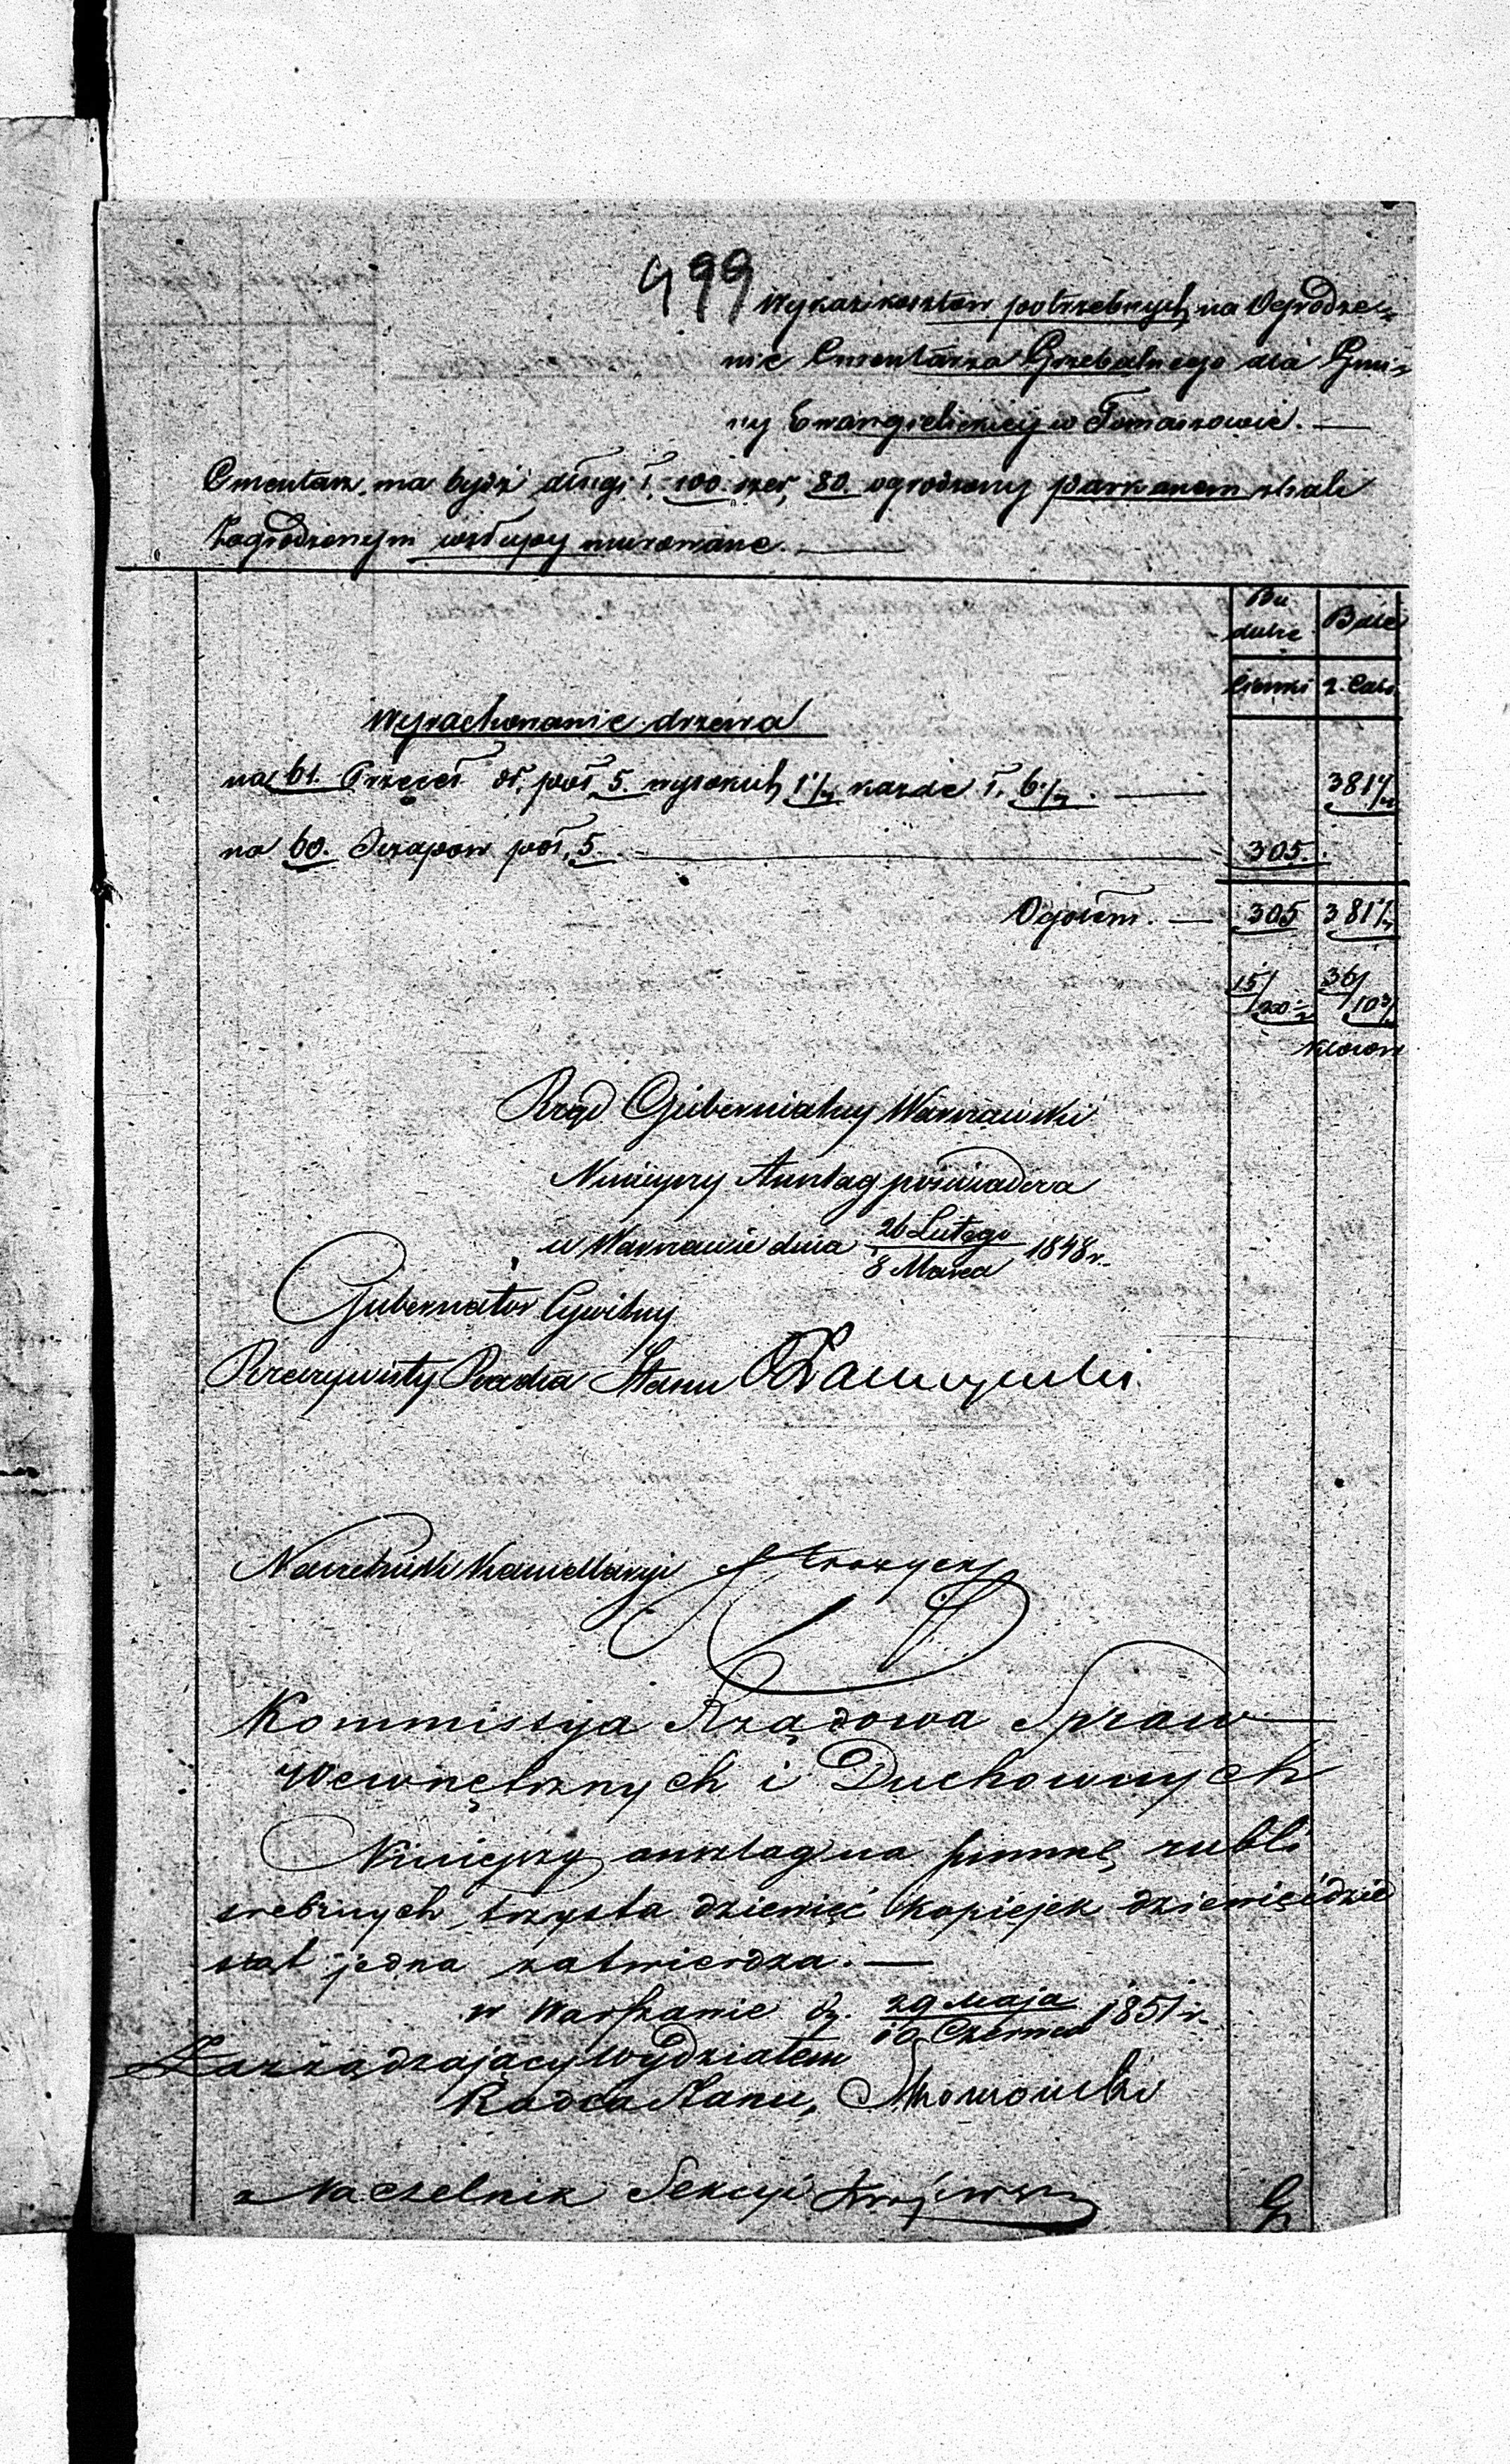 499
Wykaz kosztów potrzebnych na Ogrodze-
nie Cmentarza Grzebalnego dla Gmi-
ny Ewangelickiej w Tomaszowie.
Cmentarz ma bydź długi ł. 100. szer. 80. ogrodzony parkanem
zagrodzonym w słupy murowane.
Bu
dulce
Bale
Cienki
2. Calo.
Wyrachowanie drzewa
na 61. Przęseł dł. poł. 5. wysokich 1 1/2 każde ł. 6 1/4.
381 1/4
na 60. poł. 5.
305.
Ogółem.
305
381 1/4
15/
36/
Kloców
Rząd Gubernialny Warszawski
Niniejszy Anszlag poświadcza
w Warszawie dnia 26 Lutego / 8 Marca 1848 r.
Gubernator Cywilny
Rzeczywisty Radca Stanu
Naczelnik Kancellaryi
Kommissyja Rządowa Spraw
Wewnętrznych i Duchownych
Niniejszy anszlag na summę rubli
srebrnych trzysta dziewięć kopiejek dziewięćdzie
siąt jedna zatwierdza.
w Warszawie d. 29 Maja / 10 Czerwca 1851 r.
Zarządzający Wydziałem
Radca Stanu,
Naczelnik Sekcyi